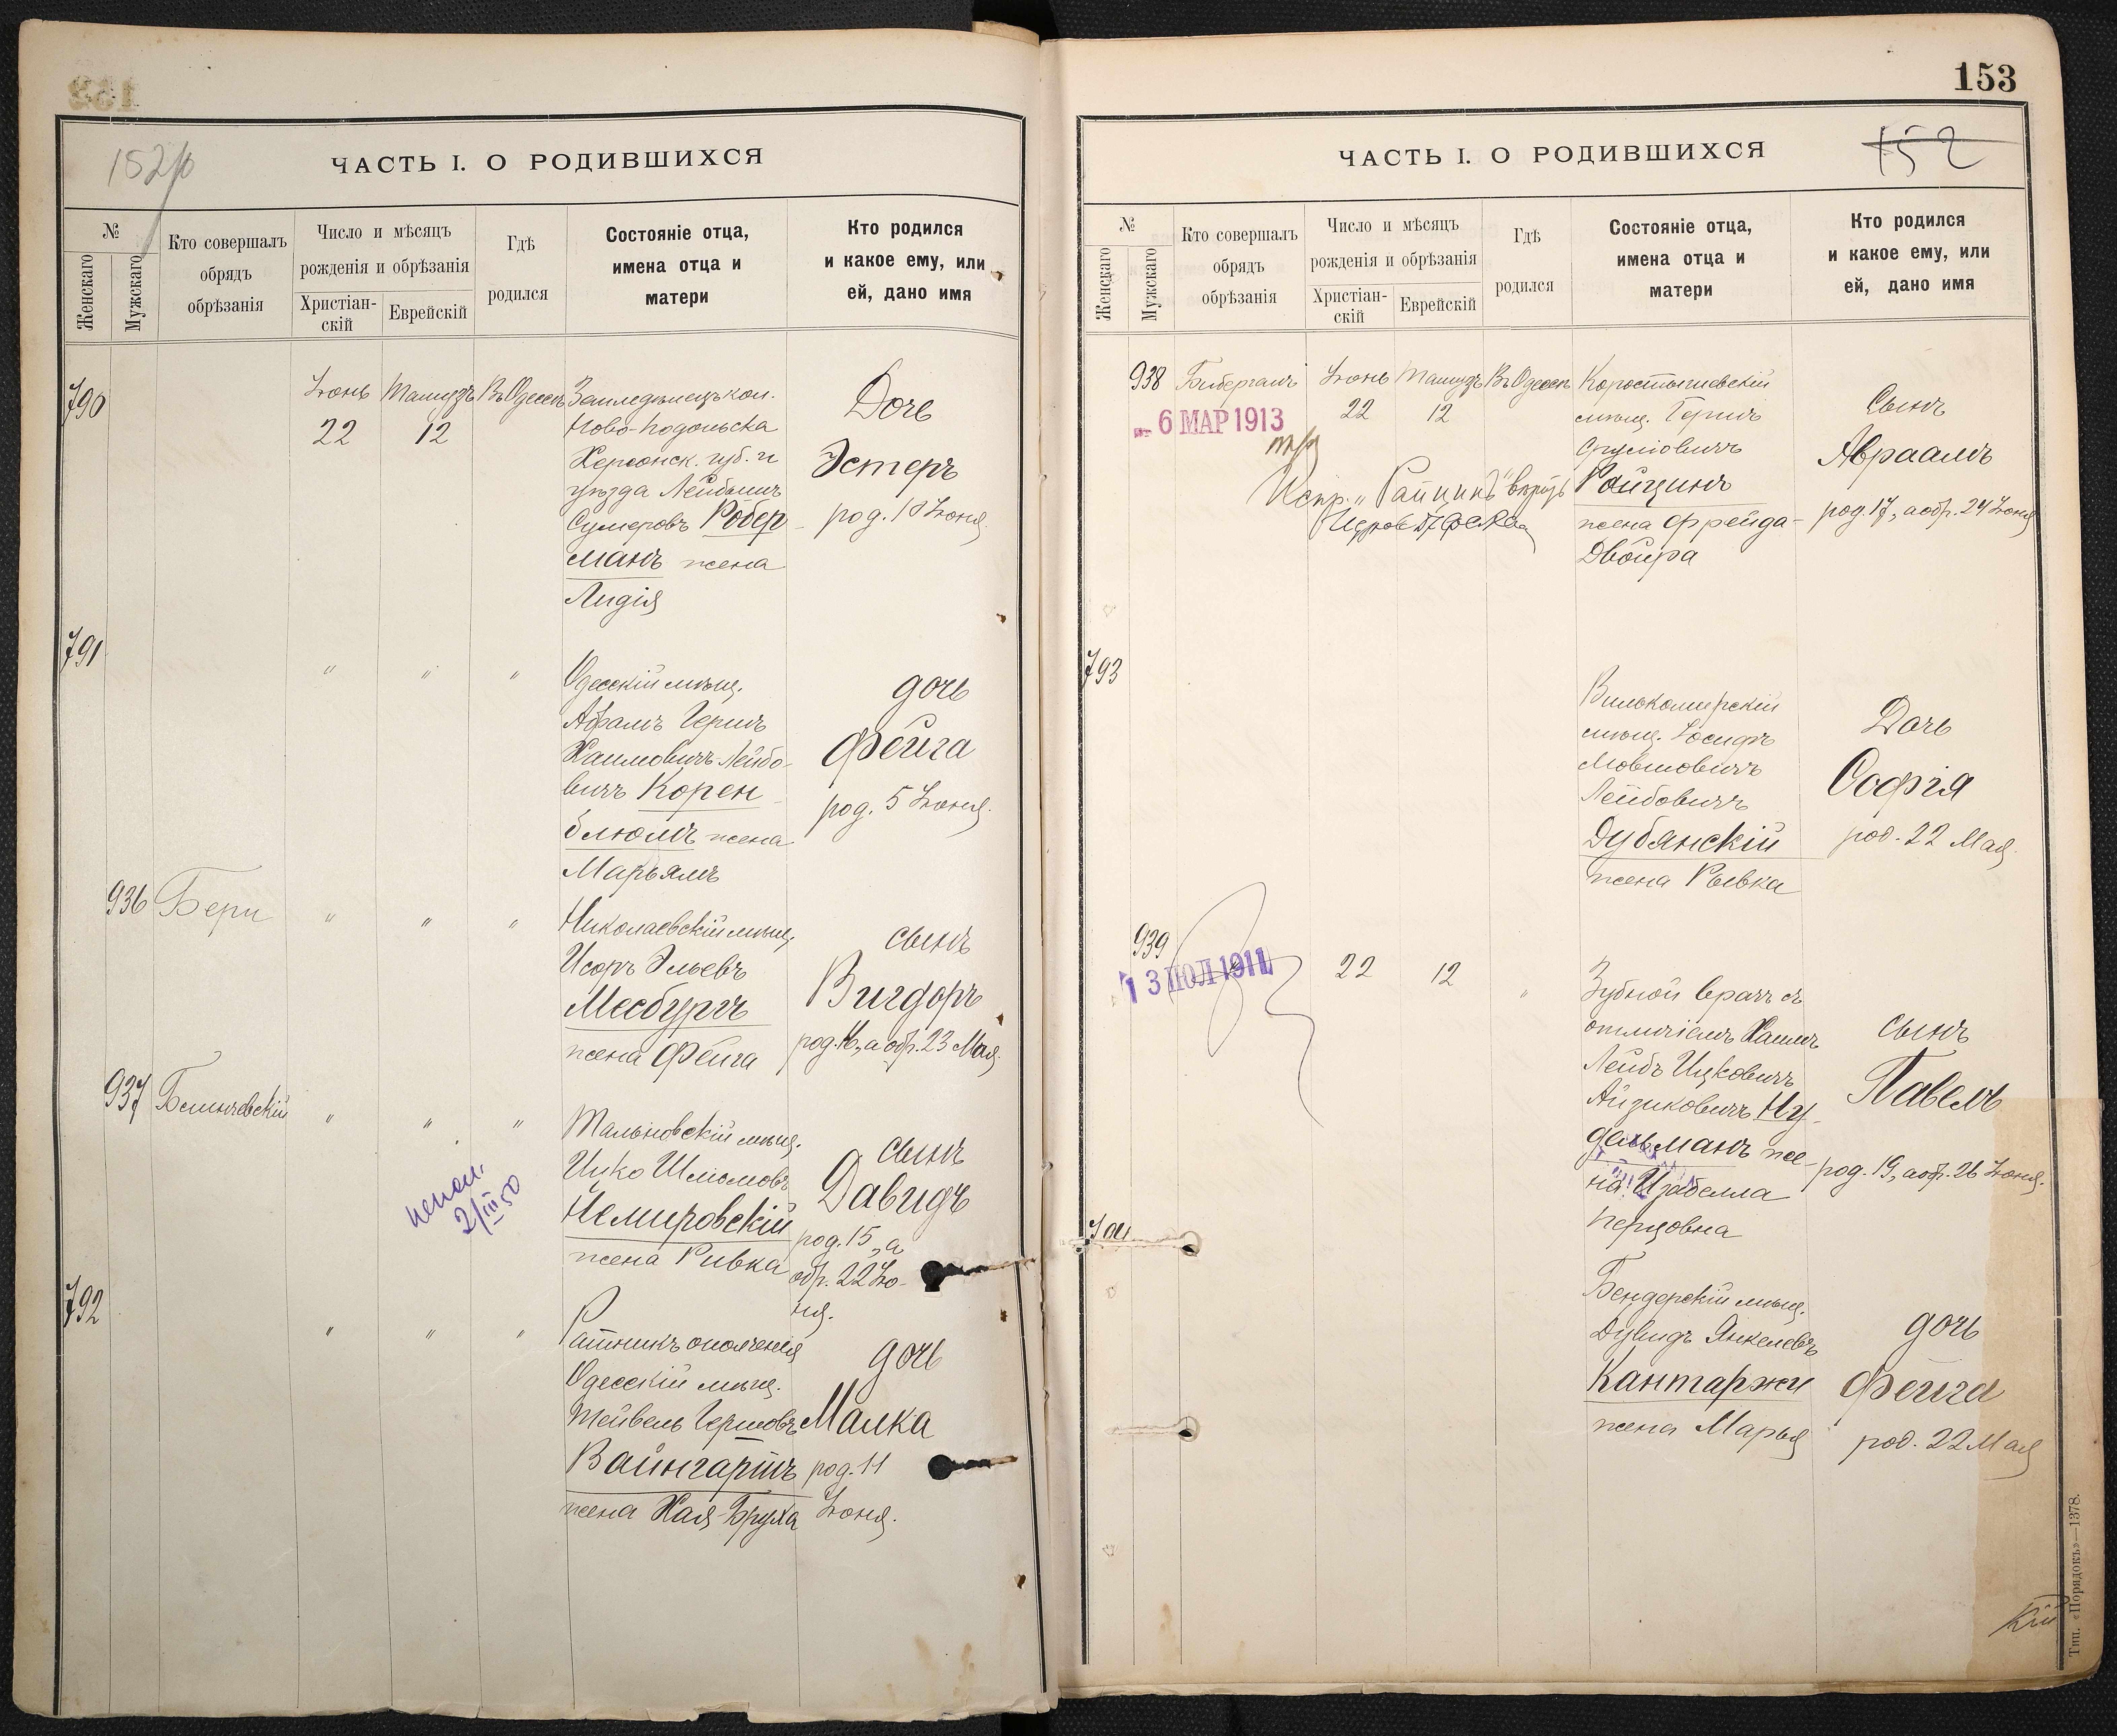 152 об
ЧАСТЬ I. О РОДИВШИХСЯ
№
Женскаго
Мужскаго
Кто совершалъ
обрядъ
обрѣзанія
Число и мѣсяцъ
рожденія и обрѣзанія
Христіан-
скій
Еврейскій
Гдѣ
родился
Состояніе отца,
имена отца и
матери
Кто родился
и какое ему, или
ей, дано имя
790
Іюнь
22
Тамузъ
12
Въ Одессѣ
Земледѣлецъ кол.
Ново-Подольска
Херсонск. губ. и
уѣзда Лейбишъ
Сумеровъ Робер-
манъ жена
Лидія
Дочь
Эстеръ
род. 18 Іюня.
791
"
"
"
Одесскій мѣщ.
Абрамъ Гершъ
Хаимовичъ-Лейбо-
вичъ Корен-
блюмъ жена
Марьямъ
дочь
Фейга
род. 5 Іюня.
936
Бери
"
"
"
Николаевскій мѣщ.
Исоръ Эльевъ
Месбургъ
жена Фейга
сынъ
Вигдоръ
род. 16, а обр. 23 Мая.
937
"
"
"
Тальновскій мѣщ.
Ицко Шлиомовъ
Немировскій
жена Ривка
сынъ
Давидъ
род. 15, а
обр. 22 Ію-
ня.
2/III 50
792
"
"
"
Ратникъ ополченія
Одесскій мѣщ.
Тейвель Гершовъ
Вайнгартъ
жена Хая-Бруха
дочь
Малка
род. 11
Іюня.
153
152
ЧАСТЬ I. О РОДИВШИХСЯ
№
Женскаго
Мужскаго
Кто совершалъ
обрядъ
обрѣзанія
Число и мѣсяцъ
рожденія и обрѣзанія
Христіан-
скій
Еврейскій
Гдѣ
родился
Состояніе отца,
имена отца и
матери
Кто родился
и какое ему, или
ей, дано имя
938
Бибергалъ
6 МАР 1913
Іюнь
22
Тамузъ
12
Въ Одессѣ
Испр. „Райцинъ" вѣрно
Коростышевскій
мѣщ. Гершъ
Срулиовичъ
Райцинъ
жена Фрейда-
Двойра
Сынъ
Авраамъ
род. 17, а обр. 24 Іюня
793
Вилькомирскій
мѣщ. Іосифъ
Мовшовичъ
Лейбовичъ
Дубянскій
жена Рывка
Дочь
Софія
род. 22 Мая.
939
13 ІЮЛ 1911
22
12
"
Зубной врачъ съ
отличіемъ Хаимъ
Лейбъ Ицковичъ
Айзиковичъ Ну-
дельманъ же-
на Изабелла
Перцовна
сынъ
Павелъ
род. 19, а обр. 26 Іюня.
Бендерскій мѣщ.
Дувидъ Янкелевъ
Кантаржи
жена Марья
дочь
Фейга
род. 22 Мая
Тип. «Порядокъ»—1378.